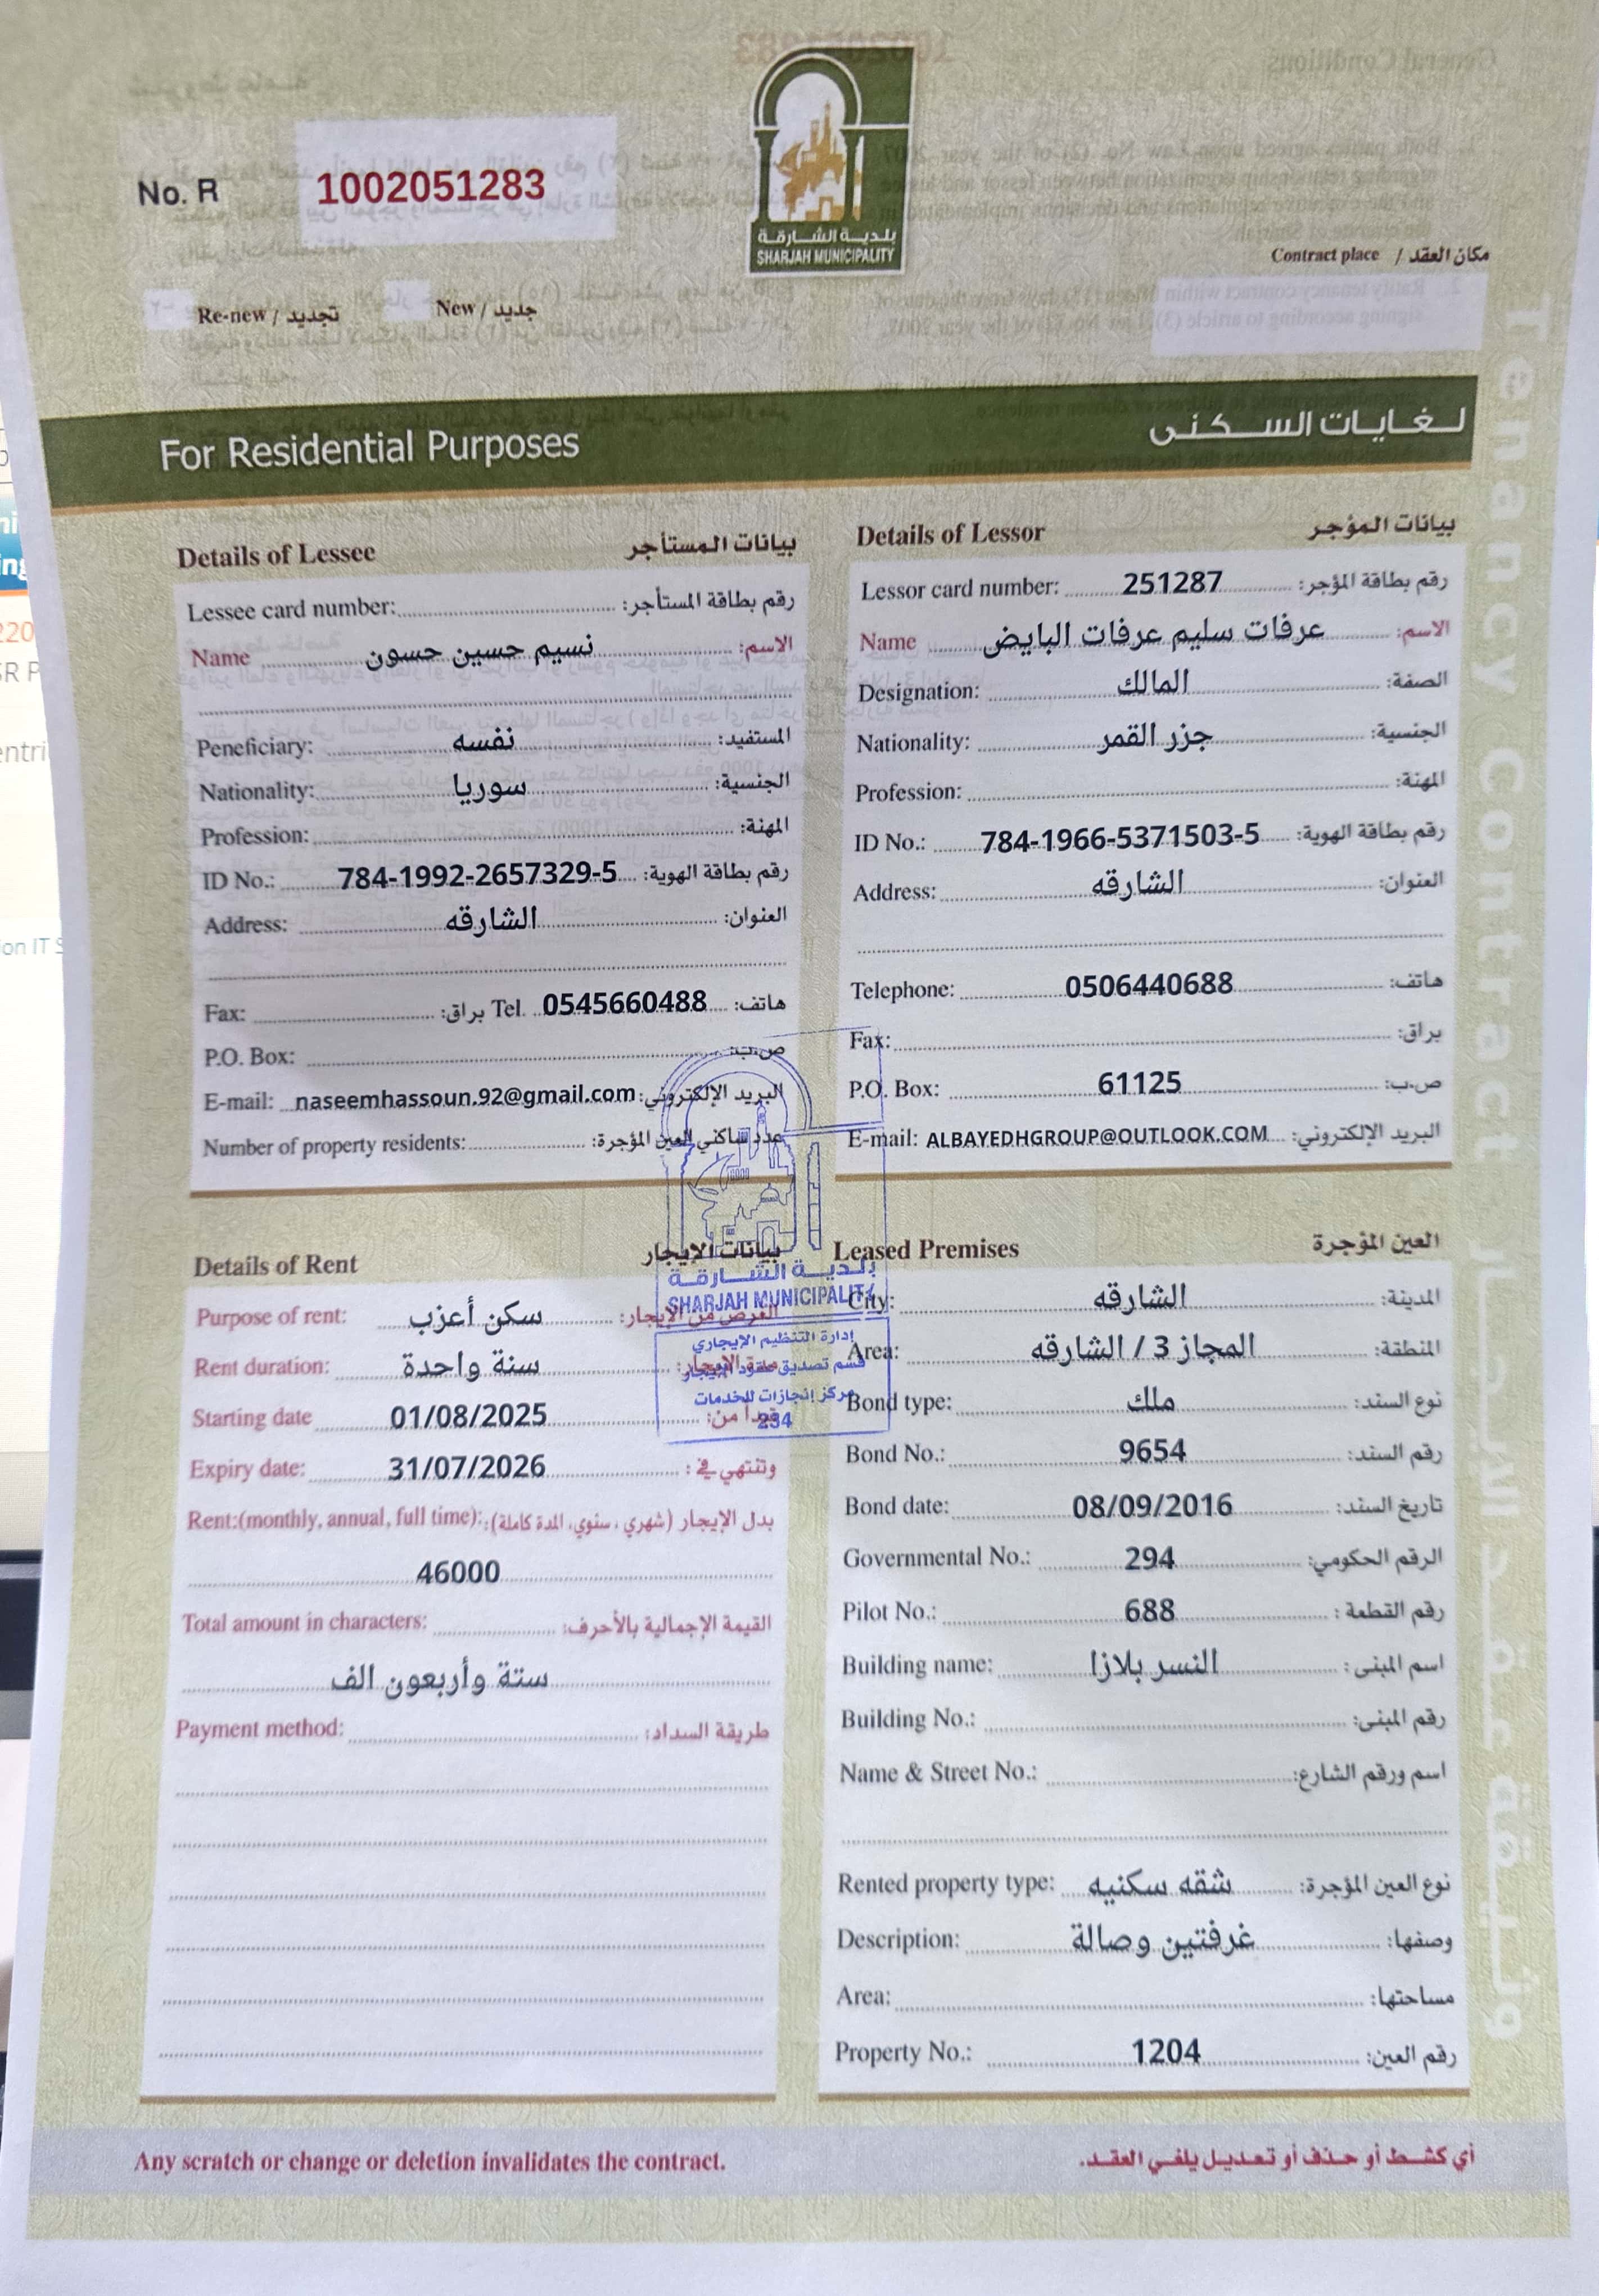 No. R 1002051283
بلدية الشارقة
SHARJAH MUNICIPALITY
Contract place / مكان العقد
Re-new / تجديد New / جديد
For Residential Purposes لغايات السكنى
Details of Lessee بيانات المستأجر
Lessee card number: رقم بطاقة المستأجر:
Name نسيم حسين حسون الاسم:
Peneficiary: نفسه المستفيد:
Nationality: سوريا الجنسية:
Profession: المهنة:
ID No.: 784-1992-2657329-5 رقم بطاقة الهوية:
Address: الشارقه العنوان:
Fax: براق: Tel. 0545660488 هاتف:
P.O. Box: ص.ب:
E-mail: naseemhassoun.92@gmail.com البريد الإلكتروني:
Number of property residents: عدد ساكني العين المؤجرة:
Details of Lessor بيانات المؤجر
Lessor card number: 251287 رقم بطاقة المؤجر:
Name عرفات سليم عرفات البايض الاسم:
Designation: المالك الصفة:
Nationality: جزر القمر الجنسية:
Profession: المهنة:
ID No.: 784-1966-5371503-5 رقم بطاقة الهوية:
Address: الشارقه العنوان:
Telephone: 0506440688 هاتف:
Fax: براق:
P.O. Box: 61125 ص.ب:
E-mail: ALBAYEDHGROUP@OUTLOOK.COM البريد الإلكتروني:
Details of Rent بيانات الإيجار
Purpose of rent: سكن أعزب الغرض من الإيجار:
Rent duration: سنة واحدة مدة الإيجار:
Starting date 01/08/2025 تبدأ من:
Expiry date: 31/07/2026 وتنتهي في:
Rent:(monthly, annual, full time): بدل الإيجار (شهري، سنوي، المدة كاملة):
46000
Total amount in characters: القيمة الإجمالية بالأحرف:
ستة وأربعون الف
Payment method: طريقة السداد:
بلدية الشارقة
SHARJAH MUNICIPALITY
إدارة التنظيم الإيجاري
قسم تصديق عقود الإيجار
مركز إنجازات للخدمات
234
Leased Premises العين المؤجرة
City: الشارقه المدينة:
Area: المجاز 3 / الشارقه المنطقة:
Bond type: ملك نوع السند:
Bond No.: 9654 رقم السند:
Bond date: 08/09/2016 تاريخ السند:
Governmental No.: 294 الرقم الحكومي:
Pilot No.: 688 رقم القطعة :
Building name: النسر بلازا اسم المبنى :
Building No.: رقم المبنى:
Name & Street No.: اسم ورقم الشارع:
Rented property type: شقه سكنيه نوع العين المؤجرة:
Description: غرفتين وصالة وصفها:
Area: مساحتها:
Property No.: 1204 رقم العين:
Tenancy Contract
Any scratch or change or deletion invalidates the contract. أي كشط أو حذف أو تعديل يلغي العقد.